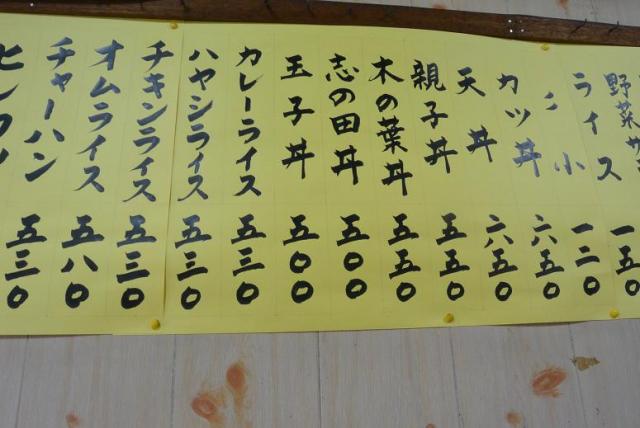 野菜サ
ライス 一五〇
〃 小 一二〇
カツ丼 六五〇
天丼 六五〇
親子丼 五五〇
木の葉丼 五五〇
志の田丼 五〇〇
玉子丼 五〇〇
カレーライス 五三〇
ハヤシライス 五三〇
チキンライス 五三〇
オムライス 五八〇
チャーハン 五三〇